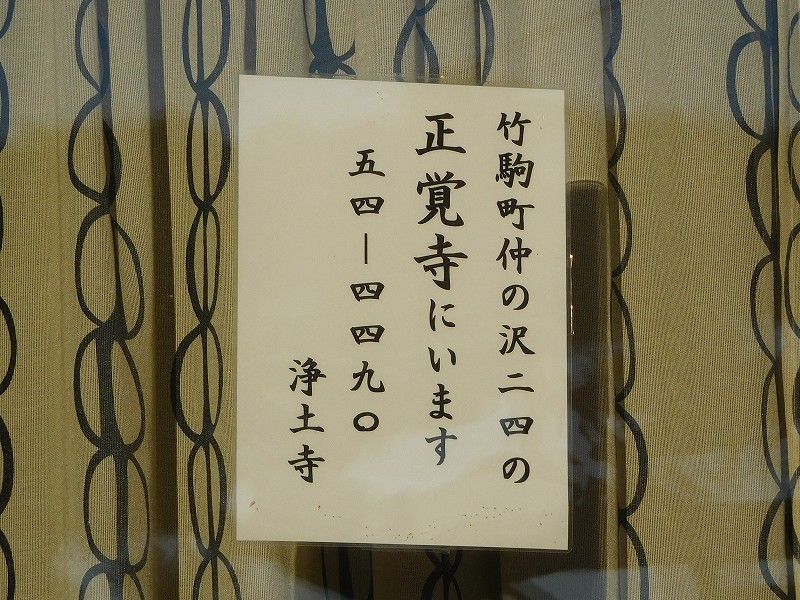 竹駒町仲の沢二四の
正覚寺にいます
五四―四四九〇
浄土寺